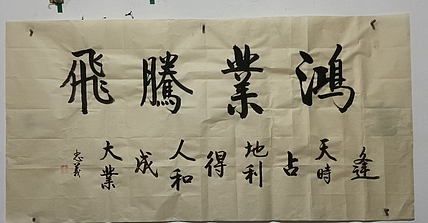 鴻業騰飛
逢天時占地利得人和成大業
忠義